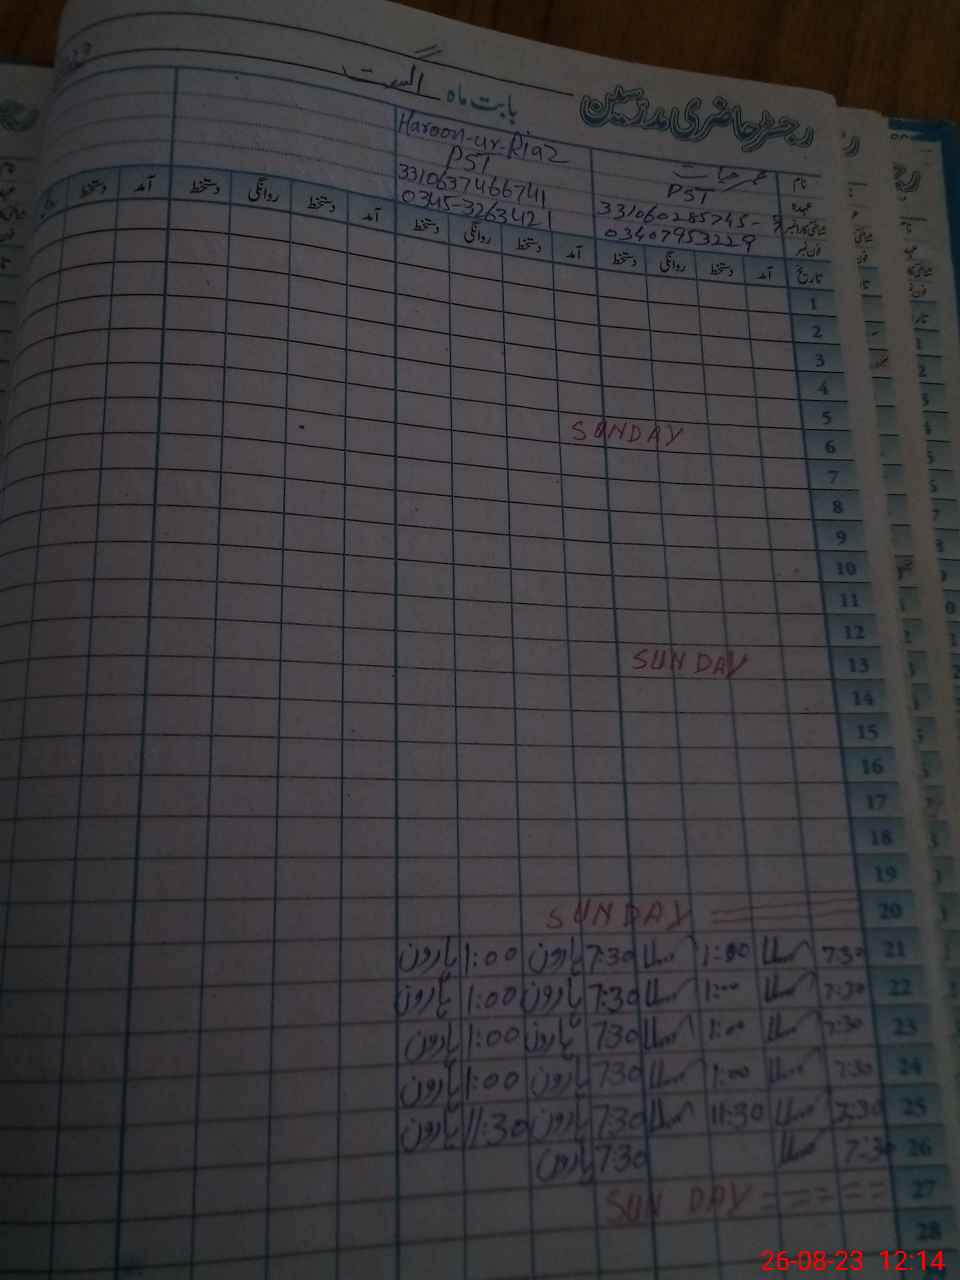 رجسٹر حاضری مدرسین بابت ماہ اگست
نام عمر حیات Haroon-ur-Riaz
عہدہ PST PST
شناختی کارڈ نمبر 331060285745-9 3310637466741
فون نمبر 03407953229 0345-3263421
تاریخ آمد دستخط روانگی دستخط آمد دستخط روانگی دستخط آمد دستخط روانگی دستخط آمد دستخط
1
2
3
4
5
6 SUNDAY
7
8
9
10
11
12
13 SUNDAY
14
15
16
17
18
19
20 SUNDAY
21 7:30 1:00 7:30 ہارون 1:00 ہارون
22 7:30 1:00 7:30 ہارون 1:00 ہارون
23 7:30 1:00 730 ہارون 1:00 ہارون
24 7:30 1:00 730 ہارون 1:00 ہارون
25 7:30 11:30 7:30 ہارون 11:30 ہارون
26 7:30 7:30 ہارون
27 SUN DAY
28
26-08-23 12:14